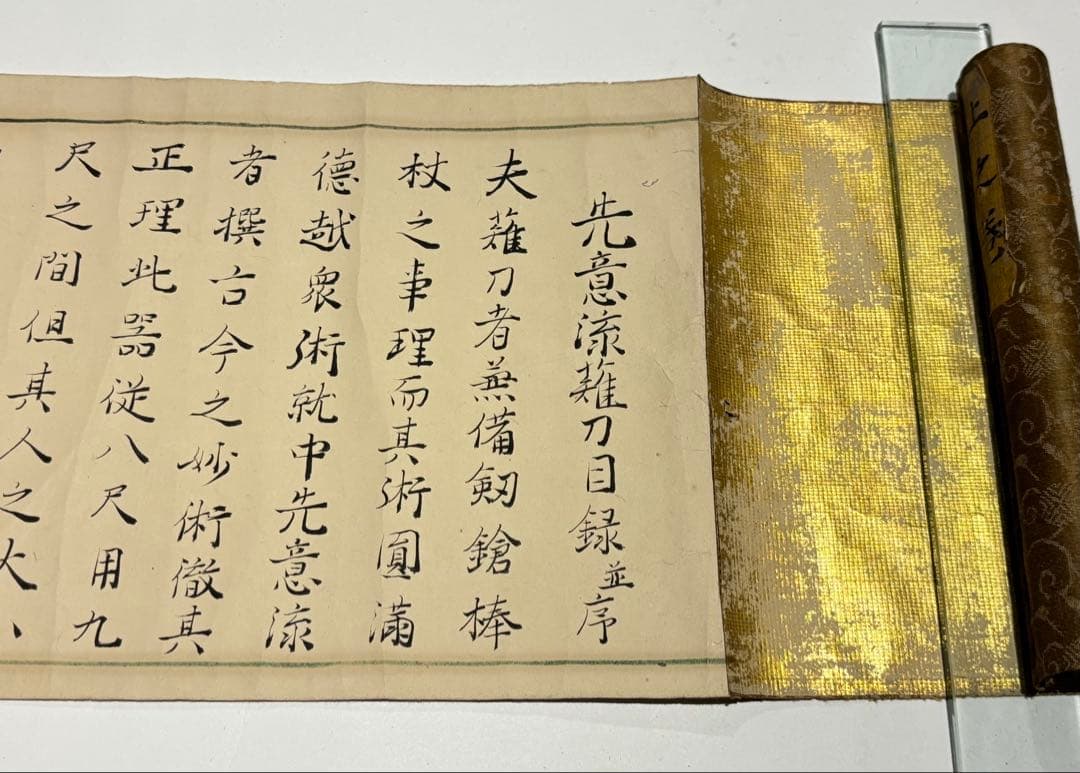 上之巻
先意流薙刀目録並序
夫薙刀者兼備剱鎗棒
杖之事理而其術圓満
徳越衆術就中先意流
者撰古今之妙術徹其
正理此器従八尺用九
尺之間但其人之大